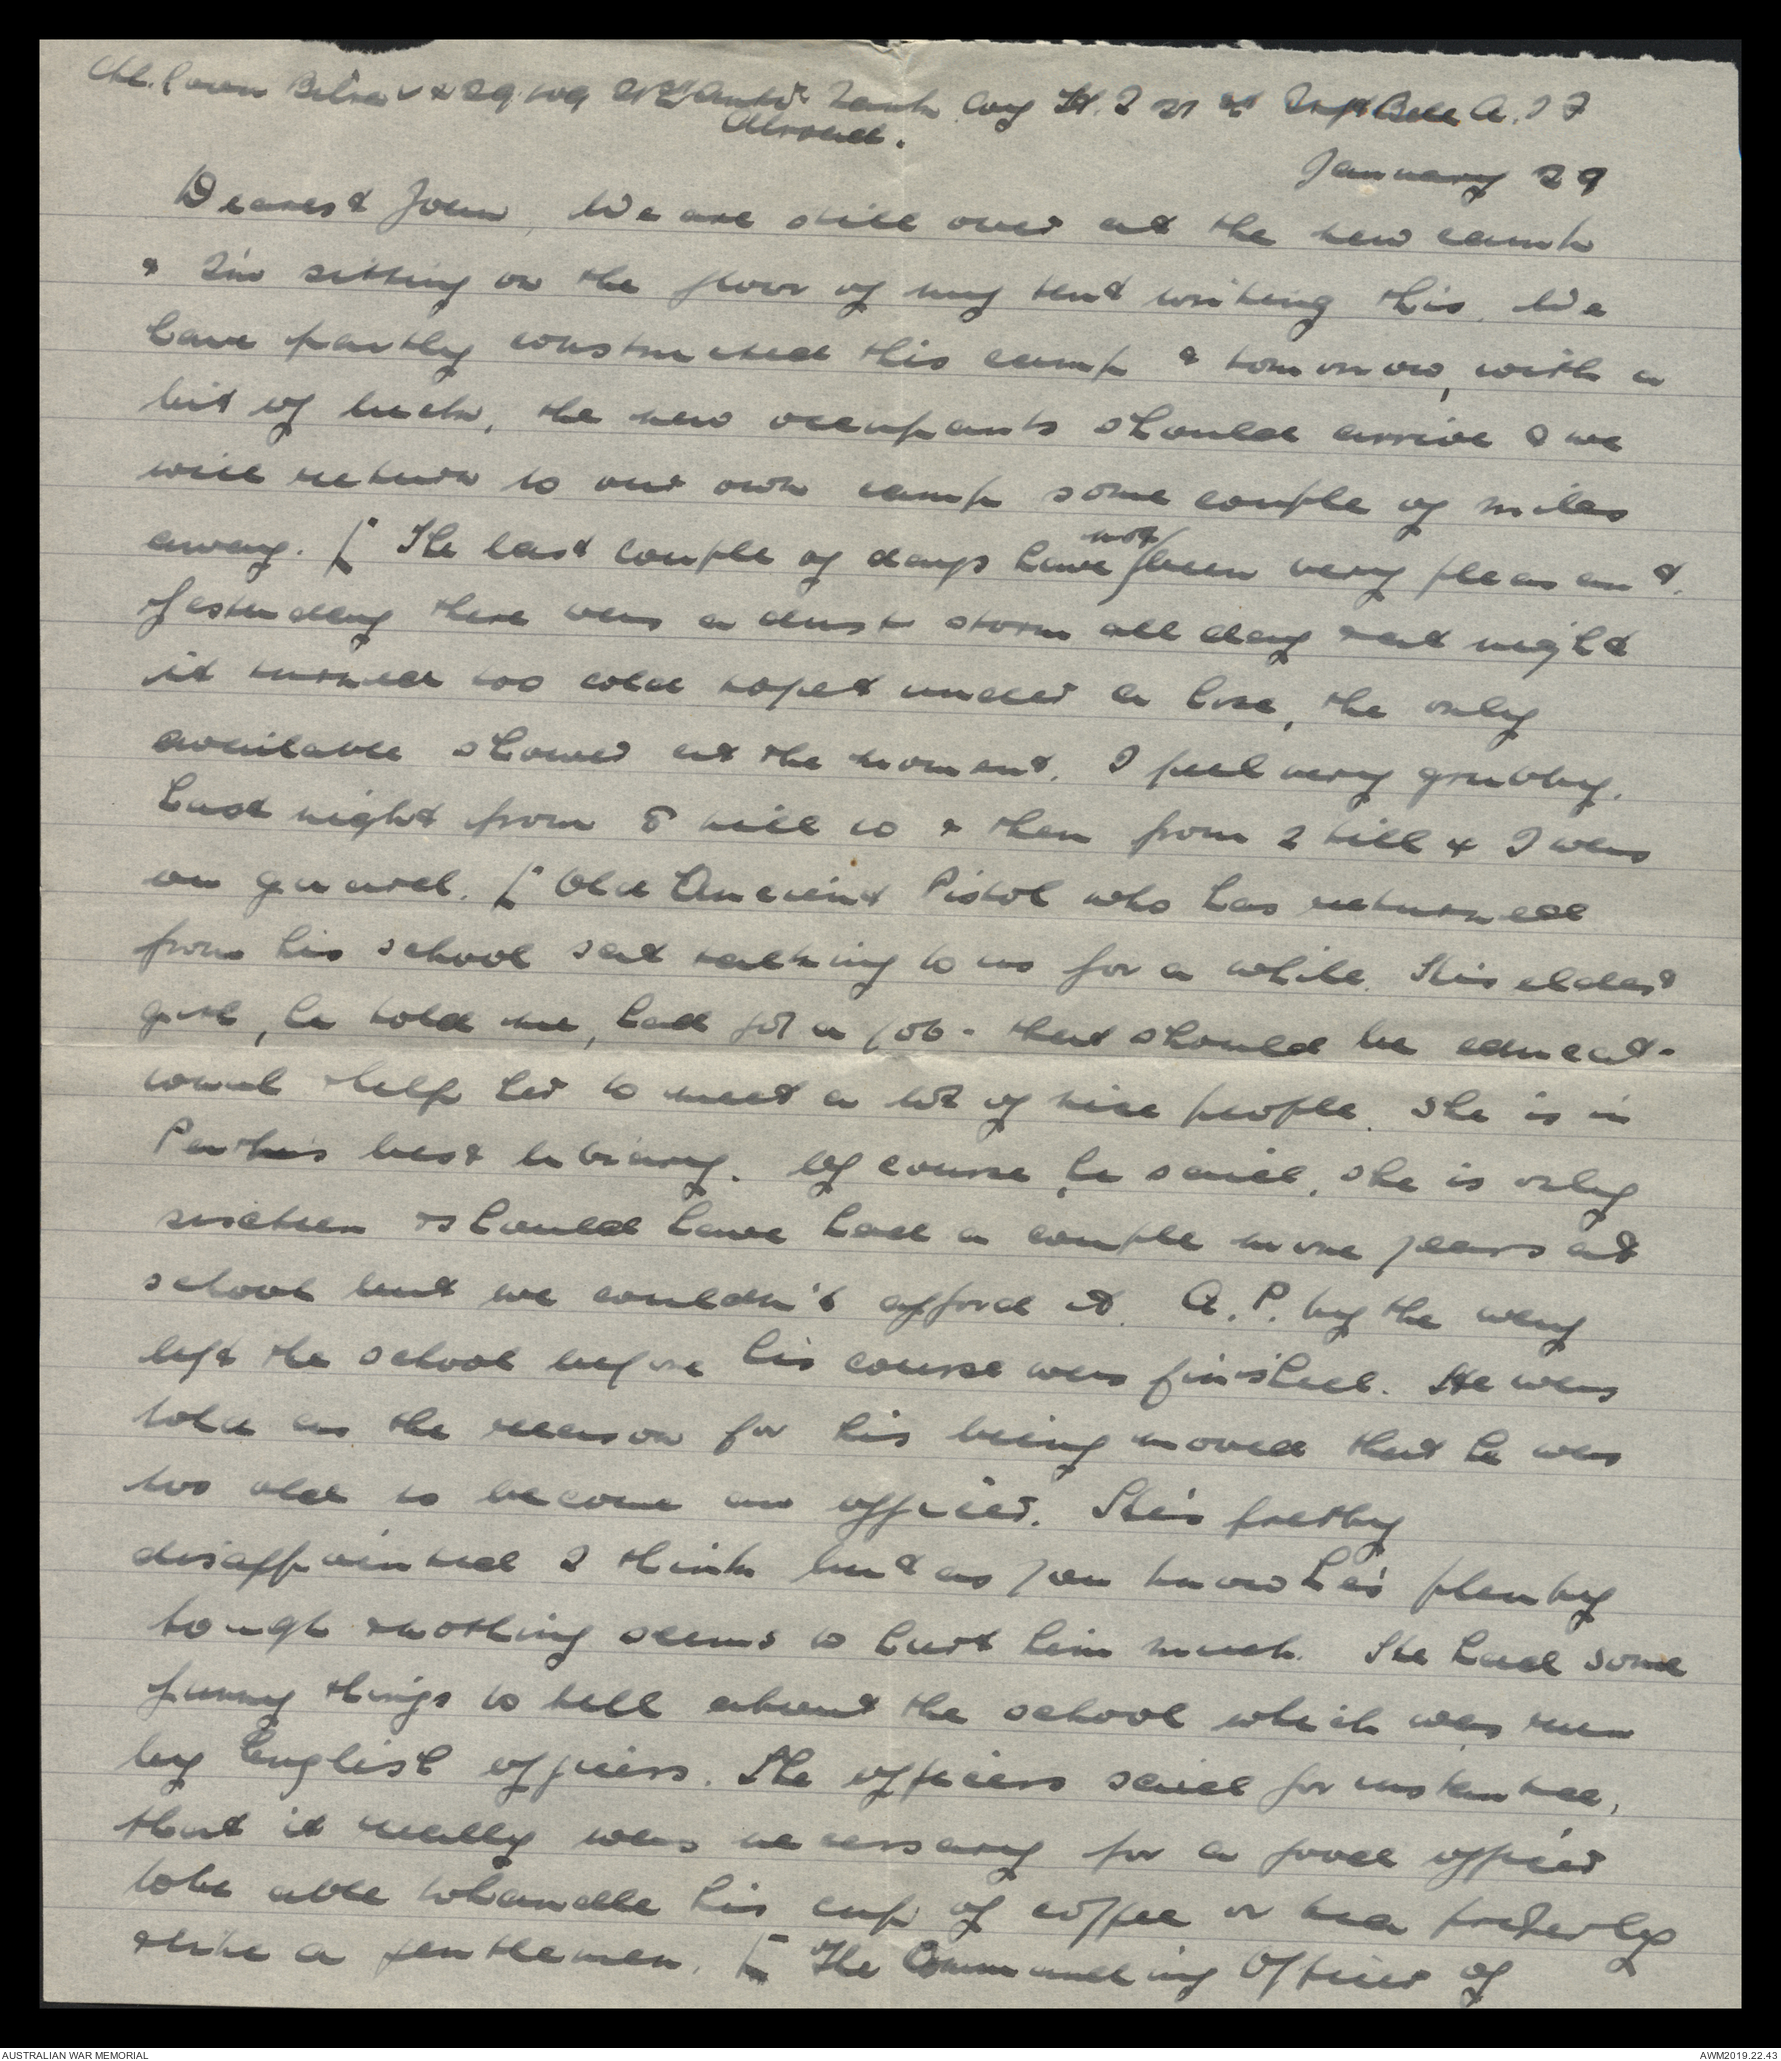 January 29
Abroad.
Dearest Joan, We are still over at the new camp
& I'm sitting on the floor of my tent writing this. We
have partly constructed this camp & tomorrow, with a
bit of luck, the new occupants should arrive & we
will return to our own camp some couple of miles
away. [ The last couple of days have not been very pleasant.
Yesterday there was a dust storm all day & at night
it turned too cold to get under a hose, the only
available shower at the moment. I feel very grubby.
Last night from 8 till 10 & then from 2 till 4 I was
on guard. [ Old Ancient Pistol who has returned
from his school sat talking to us for a while. His eldest
girl, he told me, had got a job - that should be educat-
ional & help her to meet a lot of nice people. She is in
Perth's best library. Of course, he said, she is only
sixteen & should have had a couple more years at
school but we couldn't afford it. A.P. by the way
left the school before his course was finished. He was
told as the reason for his being moved that he was
too old to become an officer. He's pretty
disappointed I think but as you know he's plenty
tough & nothing seems to hurt him much. He had some
funny things to tell about the school which was run
by English officers. The officers said for instance,
that it really was necessary for a good officer
to be able to handle his cup of coffee or tea properly
& like a gentleman. [ The Commanding Officer of
AUSTRALIAN WAR MEMORIAL
AWM2019.22.43